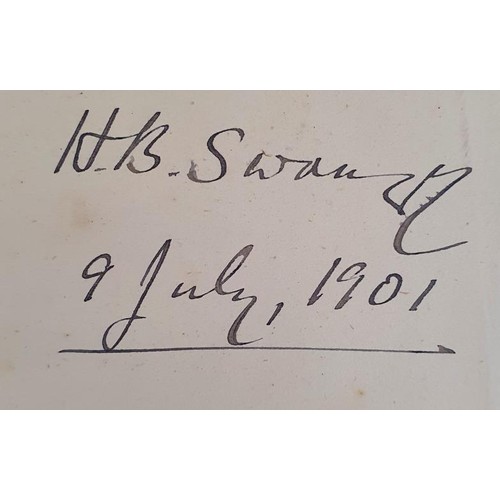 H.B. Swanzy
9 July, 1901